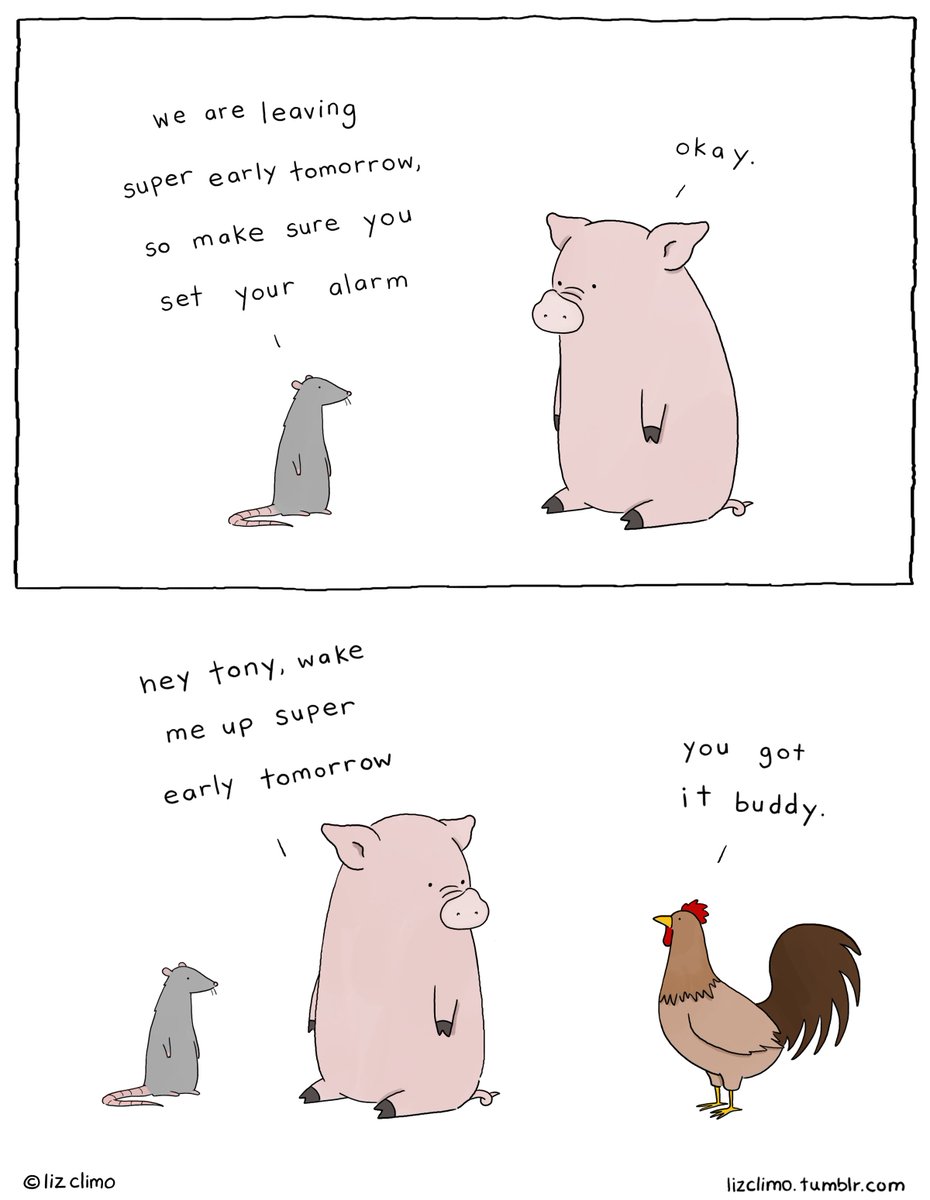 we are leaving
super early tomorrow,
so make sure you
set your alarm
okay.
hey tony, wake
me up super
early tomorrow
you got
it buddy.
© liz climo
lizclimo.tumblr.com